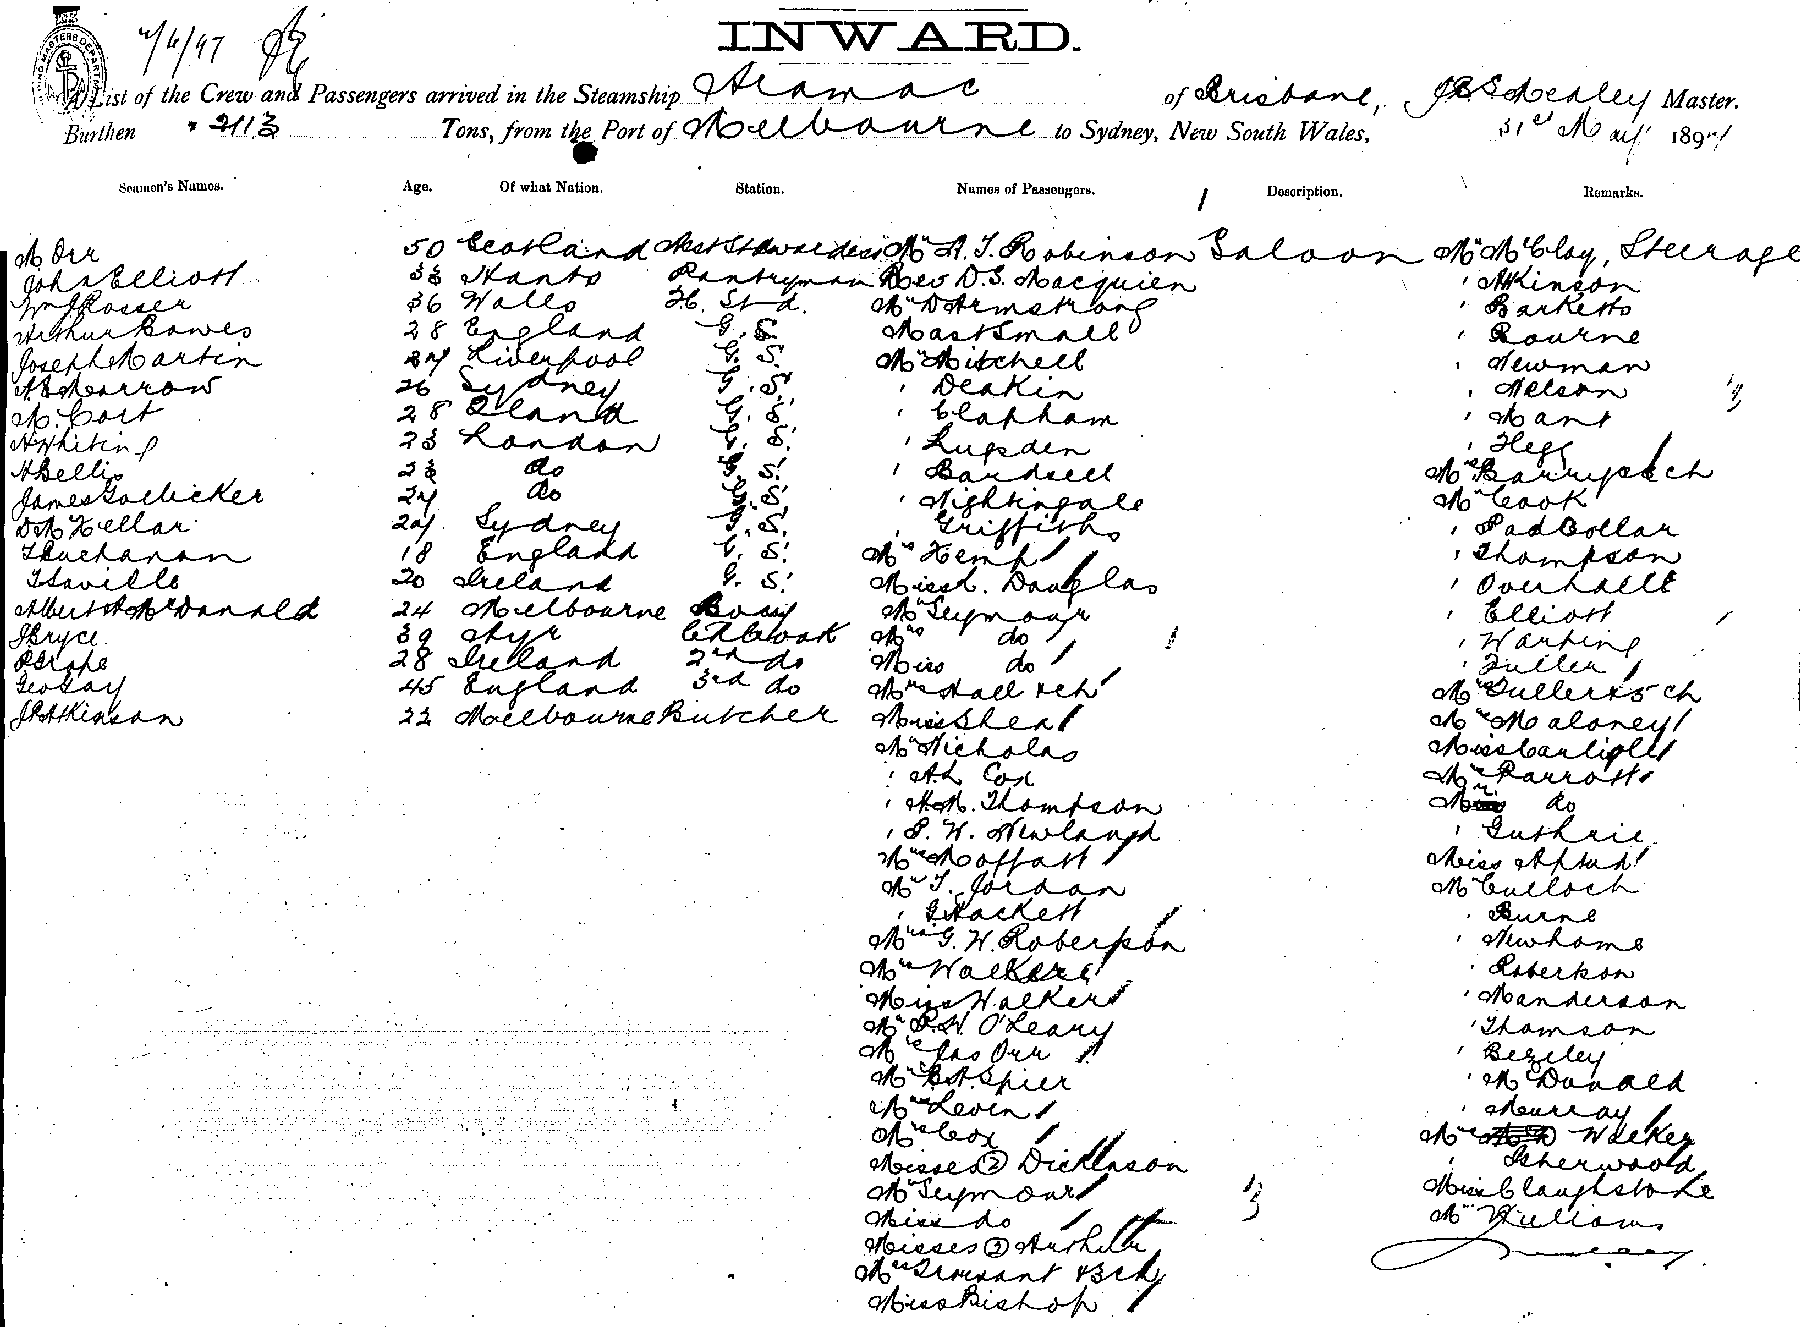 INWARD.
4/6/97
A List of the Crew and Passengers arrived in the Steamship Aramac of Brisbane, Healey Master.
Burthen 2113 Tons, from the Port of Melbourne to Sydney, New South Wales, 31st May 1897
Seamen's Names. Age. Of what Nation. Station. Names of Passengers. Description. Remarks.
M Orr 50 Scotland Asst Stewardess Mr A. J. Robinson Saloon Mr McClay, Steerage
John Elliott 33 Hants Pantryman Rev D. S. Macquien " Atkinson
Wm J Rosser 36 Wales F. C. Std. Mr D Armstrong " Barketts
Arthur Bowes 28 England G. S. Mast Small " Bourne
Joseph Martin 27 Liverpool G. S. Mr Mitchell " Newman
A E Marrow 26 Sydney G. S. " Deakin " Nelson
M. Cort 28 G. S. " Clapham " Mant
A Whiting 23 London G. S. " Lugsden " Hegg
A Bellis 23 do G. S. " Bardsell Mrs Barry & ch
James Gollicker 27 do G. S. " Nightingale Mr Cook
D McKellar 27 Sydney G. S. " Griffiths " Pad Collar
T Buchanan 18 England G. S. Mrs Kemp " Thompson
T Saville 20 Ireland G. S. Miss L. Douglas " Overhalle
Albert A McDonald 24 Melbourne Boy Mr Seymour " Elliott
J Bryce 39 Ayr Ch Cook Mrs do " Warting
P Grope 28 Ireland 2nd do Miss do " Fuller
Geo Gay 45 England 3rd do Mrs Hall & ch Mrs Fuller & 5 ch
J P Atkinson 22 Melbourne Butcher Miss Shea Mrs Maloney
Mr Nicholas Miss Carlisle
" A. L Cox Mrs Parrott
" H. M. Thompson Mr do
" E. W. Newland " Guthrie
Mrs Moffatt Miss
Mr T. Jordan Mr Culloch
" G Hackett " Burne
Mrs G. W. Robertson " Newhome
Mrs Walker " Robertson
Miss Walker " Manderson
Mr P. H. O'Leary " Thomson
Mrs Jas Orr " Bezley
Mr B. A. Spier " McDonald
Mrs Levin " Murray
Mrs Cox Mrs Walker
Misses (2) Dickinson " Isherwood
Mrs Seymour Miss Claughstone
Miss do Mr Williams
Misses (2) Arthur
Mrs Tennant & 3 ch
Miss Bishop